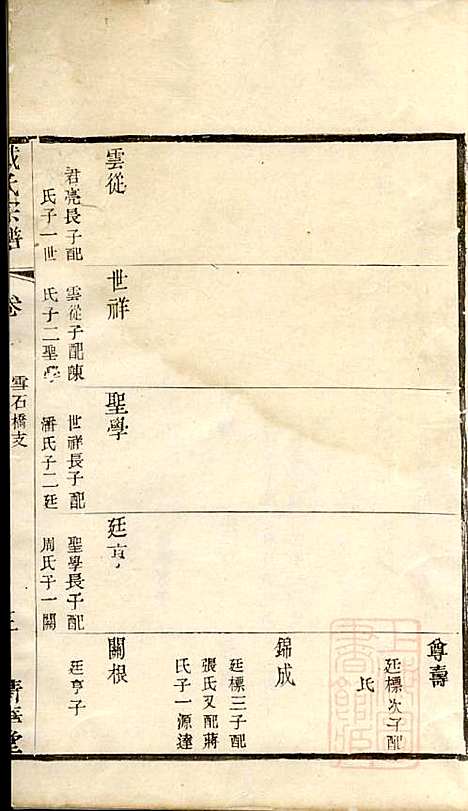 尊壽
廷標次子配
氏
錦成
廷標三子配
張氏又配蔣
氏子一源達
雲從
君亮長子配
氏子一世
世祥
雲從子配陳
氏子二聖學
聖學
世祥長子配
潘氏子二廷
廷亨
聖學長子配
周氏子一關
關根
廷亨子
氏宗譜
卷
雪石橋支